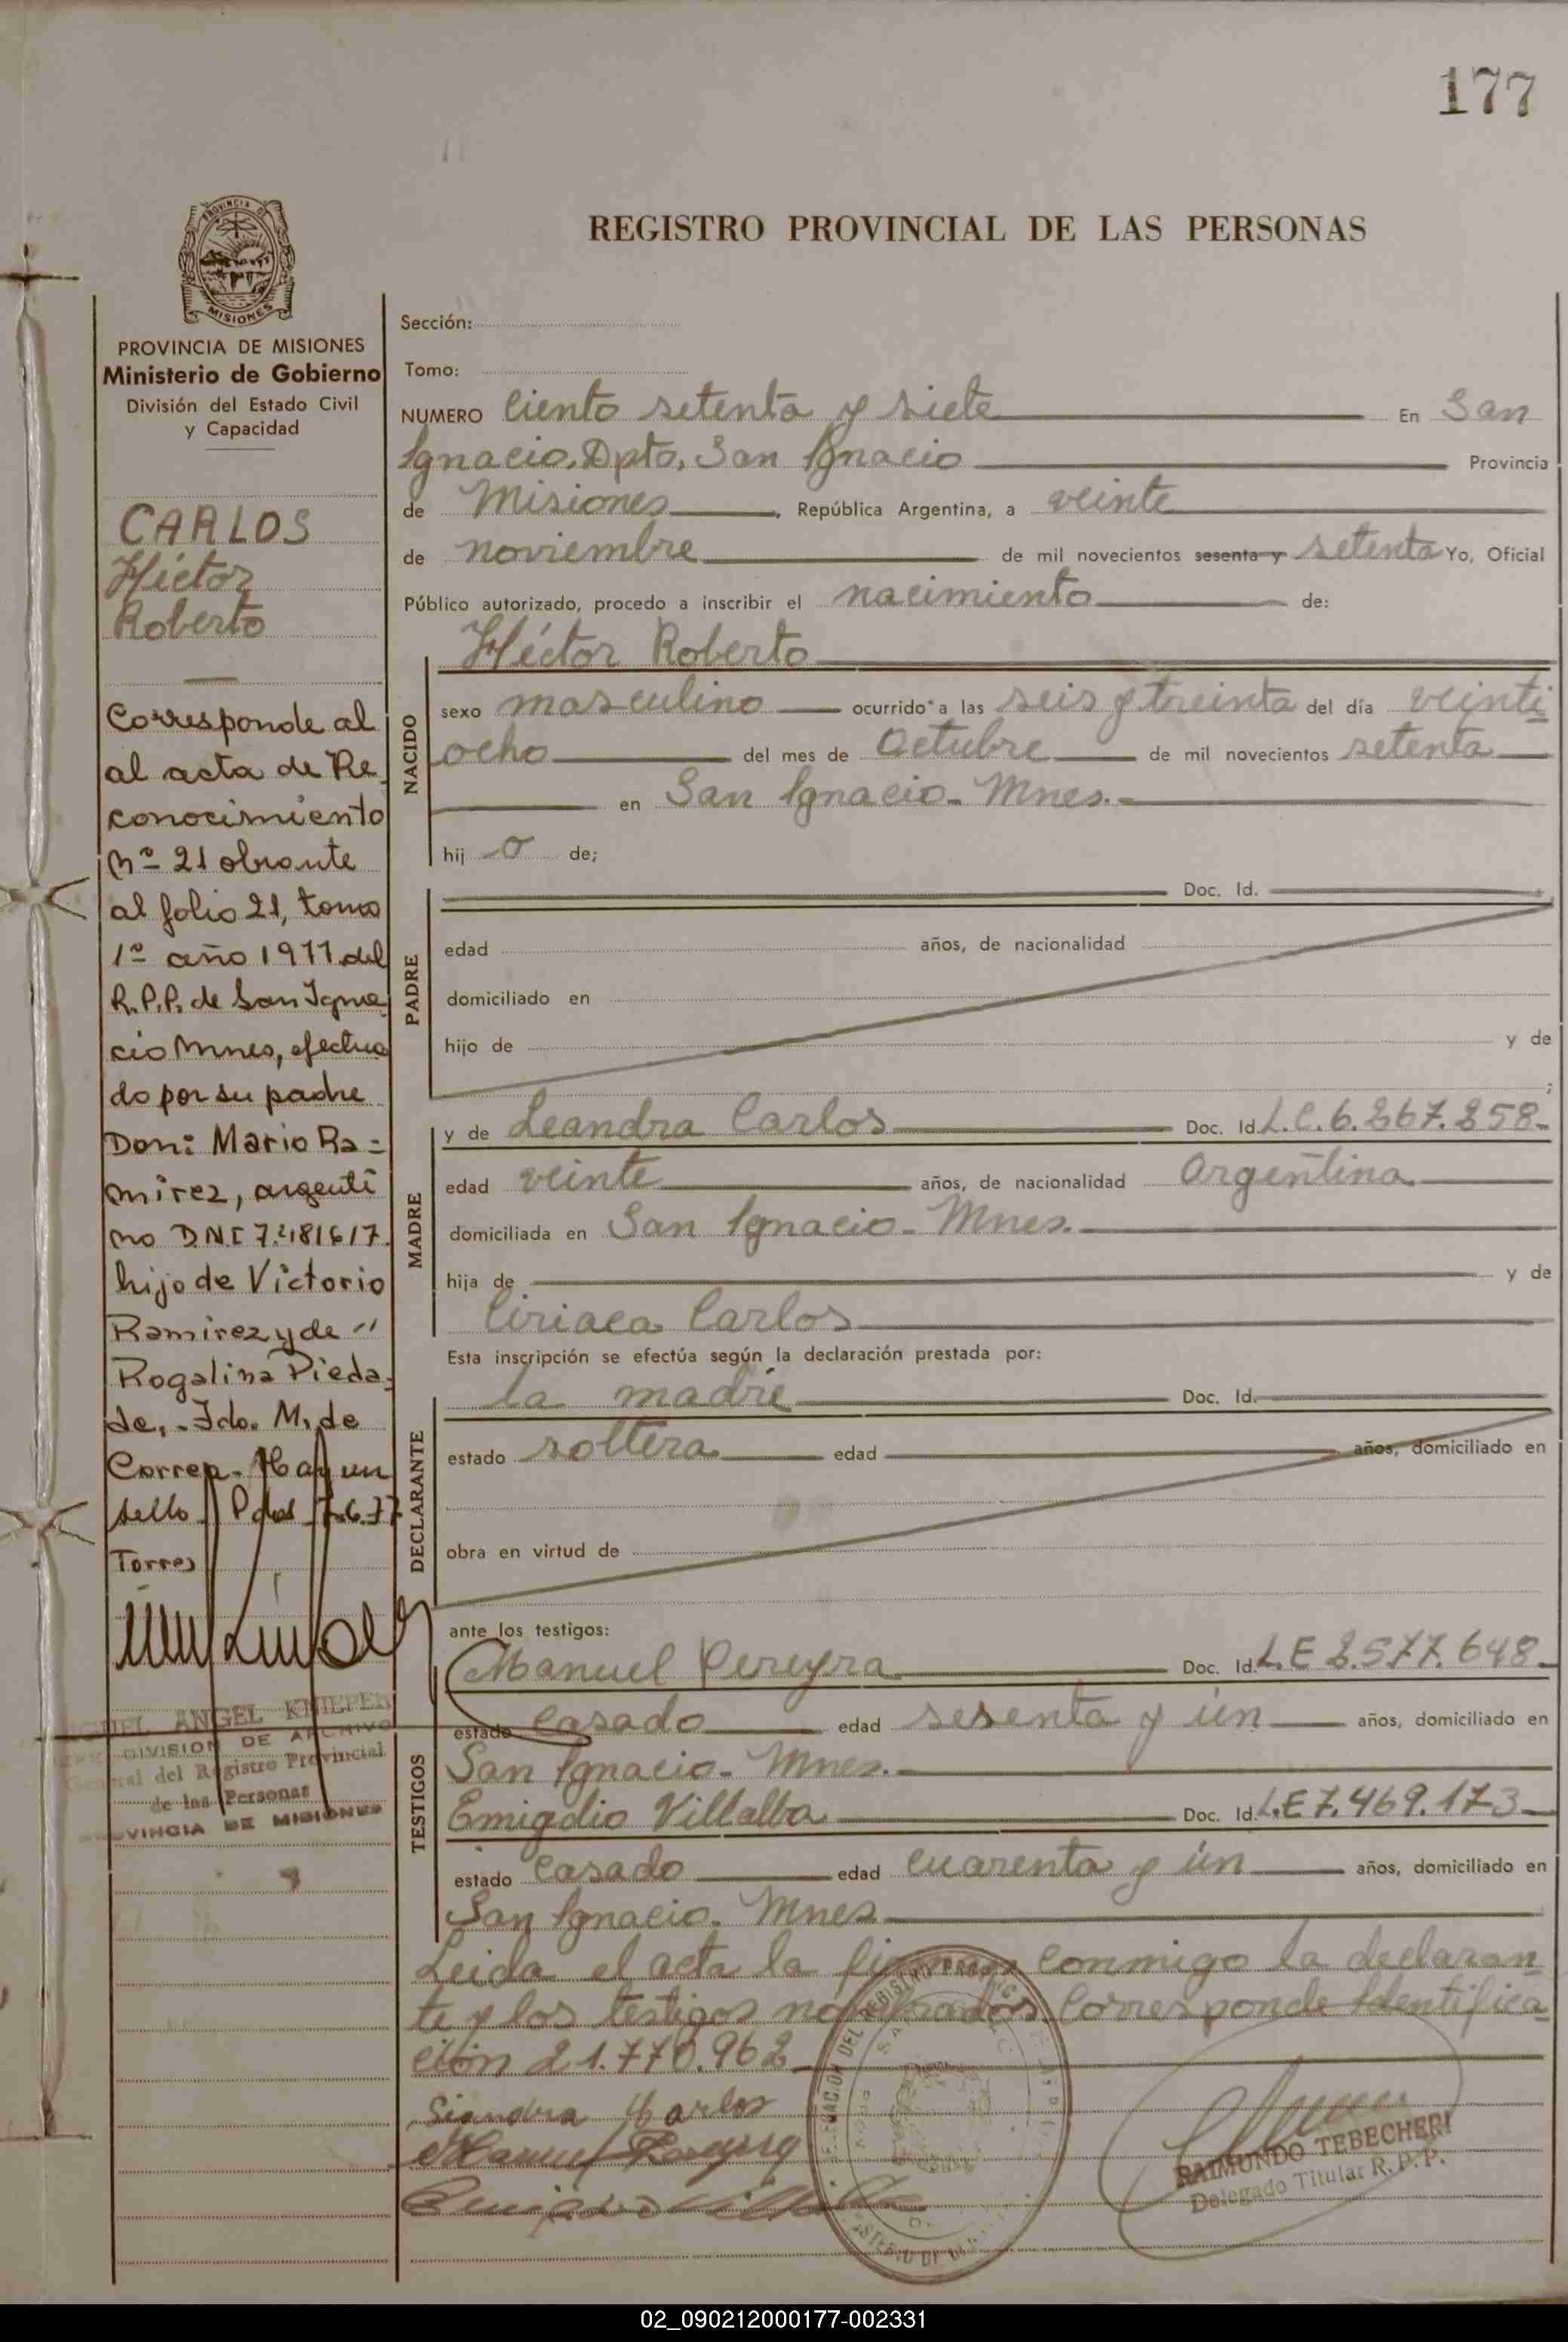 177
REGISTRO PROVINCIAL DE LAS PERSONAS
PROVINCIA DE
MISIONES
PROVINCIA DE MISIONES
Ministerio de Gobierno
División del Estado Civil
y Capacidad
CARLOS
Héctor
Roberto
Corresponde al
al acta de Re
conocimiento
Nº 21 obrante
al folio 21, tomo
1º año 1977 del
R.P.P. de San Igna
cio Mnes, efectua
do por su padre
Don: Mario Ra=
mirez, argenti
no DNI 7.481617.
hijo de Victorio
Ramirez y de "
Rogalina Pieda=
de,.- Fdo. M. de
Correa. Hay un
sello. Pdas 7.6.77
Torres
MIGUEL ANGEL KNIEPER
DIVISION DE ARCHIVO
General del Registro Provincial
de las Personas
PROVINCIA DE MISIONES
Sección:
Tomo:
NUMERO Ciento setenta y siete En San
Ignacio, Dpto. San Ignacio Provincia
de Misiones, República Argentina, a veinte
de noviembre de mil novecientos sesenta y setenta Yo, Oficial
Público autorizado, procedo a inscribir el nacimiento de:
Héctor Roberto
NACIDO
sexo masculino ocurrido a las seis y treinta del día veinti
ocho del mes de Octubre de mil novecientos setenta
en San Ignacio - Mnes.-
hij o de;
PADRE
Doc. Id.
edad años, de nacionalidad
domiciliado en
hijo de y de
;
MADRE
y de Leandra Carlos Doc. Id. L.C. 6.267.258-
edad veinte años, de nacionalidad Argentina
domiciliada en San Ignacio - Mnes.
hija de y de
Ciriaca Carlos
Esta inscripción se efectúa según la declaración prestada por:
DECLARANTE
la madre Doc. Id.
estado soltera edad años, domiciliado en
obra en virtud de
ante los testigos:
TESTIGOS
Manuel Pereyra Doc. Id. L.E 2.577.648-
estado casado edad sesenta y ún años, domiciliado en
San Ignacio - Mnes.
Emigdio Villalba Doc. Id. L.E 7.469.173
estado casado edad cuarenta y ún años, domiciliado en
San Ignacio. Mnes
Leida el acta la firman conmigo la declaran
te y los testigos nombrados. Corresponde Identifica
ción 21.770.962
Leandra Carlos
RAIMUNDO TEBECHERI
Delegado Titular R.P.P.
02_090212000177-002331